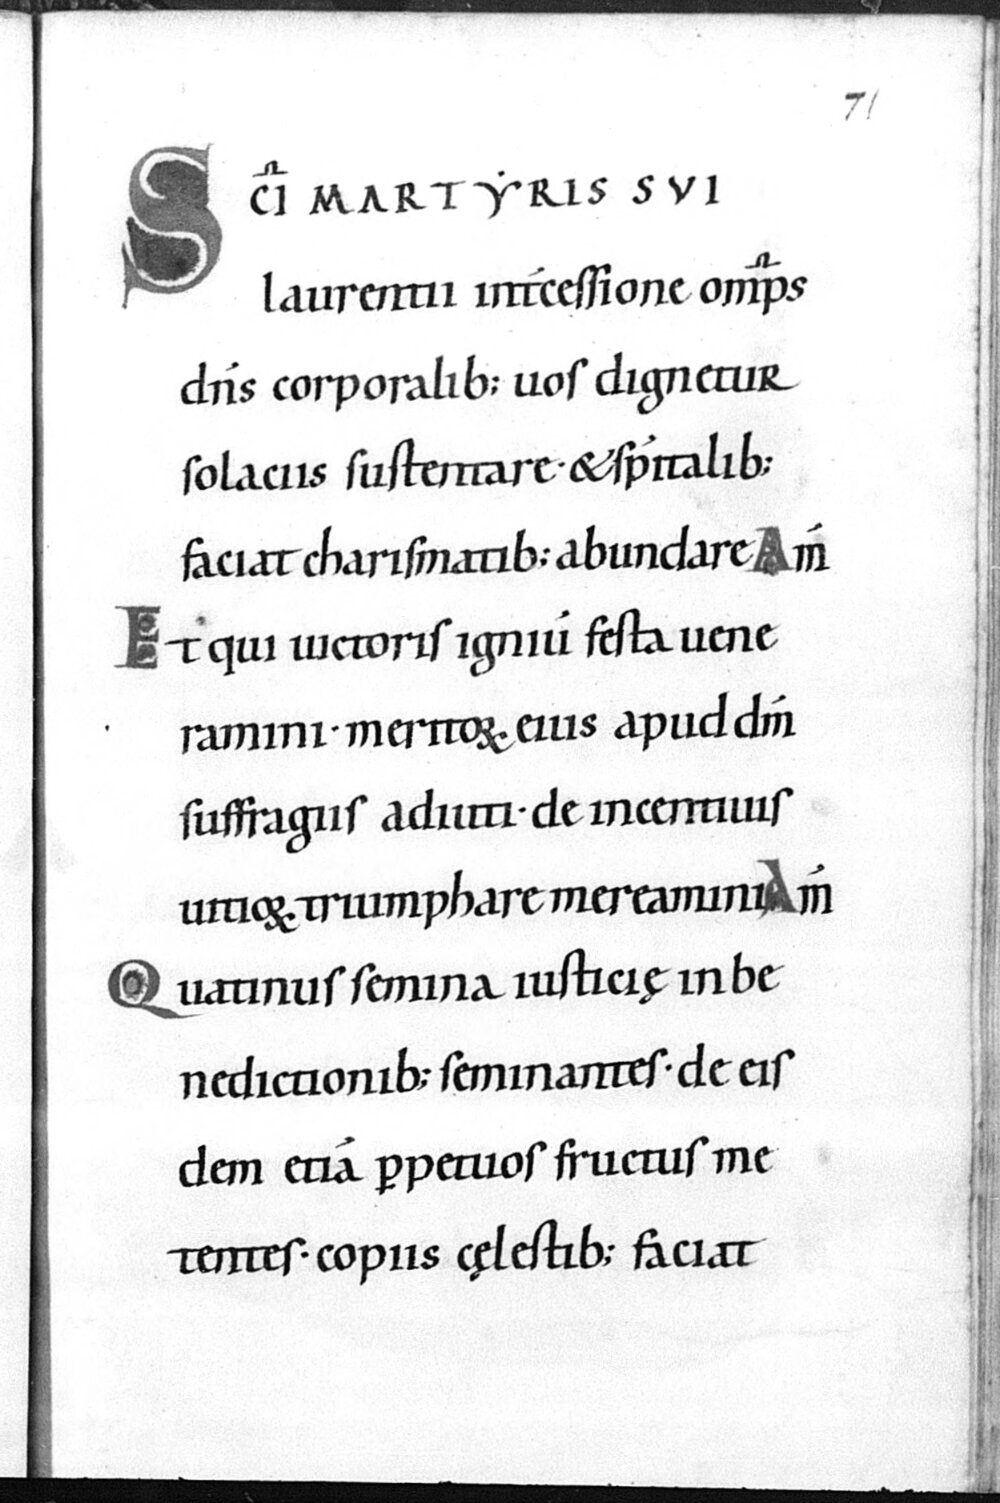 71
SC̅I MARTẎRIS SVI
laurentii int́cessione om̅ps
dńs corporalib; uos dignetur
solaciis sustentare· & sṕitalib;
faciat charismatib; abundare Am̅
Et qui uictoris igniū festa uene
ramini· meritoꝝ eius apud dm̅
suffragiis adiuti· de incentiuis
uitioꝝ triumphare mereamini Am̅
Quatinus semina iusticię in be
nedictionib; seminantes· de eis
dem etiā ꝑpetuos fructus me
tentes· copiis cęlestib; faciat